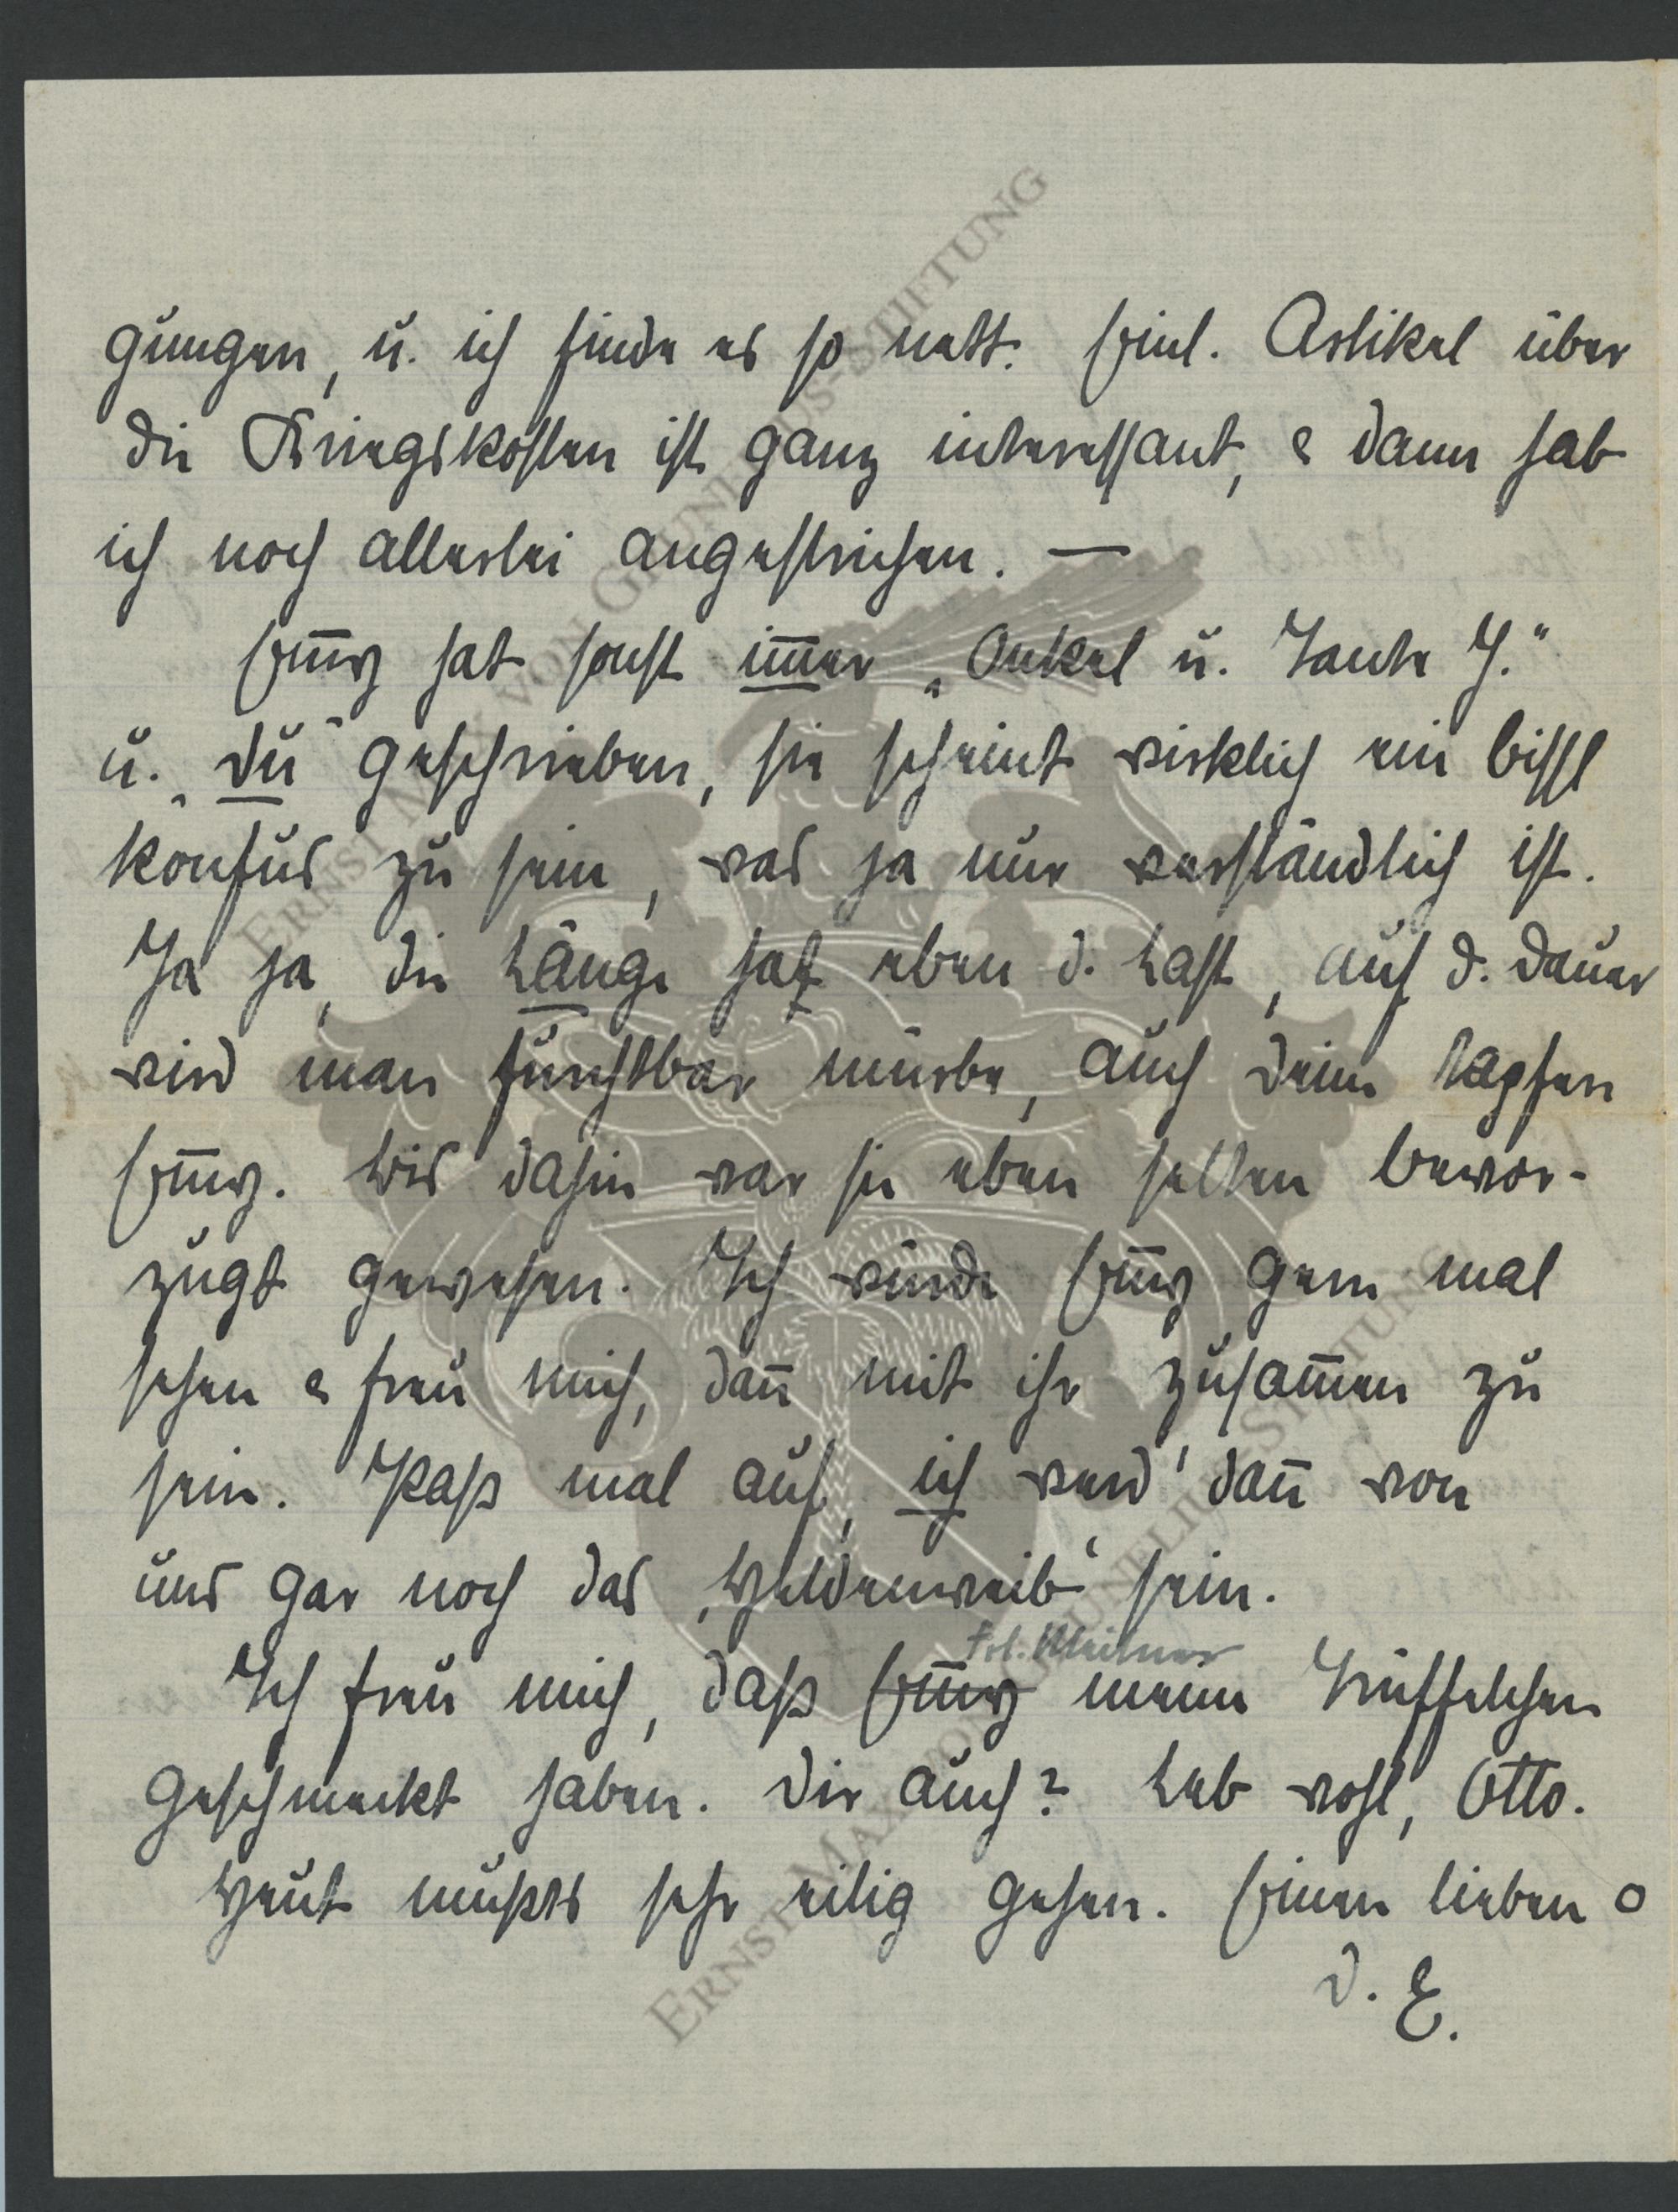 gungen, u. ich finde es so nett. Einl. Artikel über
die Kriegskosten ist ganz interessant, & dann hab
ich noch allerlei angestrichen. —
Em̅y hat sonst im̅er „Onkel u. Tante J.“
u. „Du“ geschrieben, sie scheint wirklich ein bissl
konfus zu sein, was ja nur verständlich ist.
Ja ja, die Länge hat eben d. Last, auf d. Dauer
wird man furchtbar mürbe, auch deine tapfere
Em̅y. Bis dahin war sie eben selten bevor-
zugt gewesen. Ich würde Em̅y gern mal
sehen & freu mich, dan̅ mit ihr zusam̅en zu
sein. Pass mal auf, ich werd' dan̅ von
uns gar noch das „Heldenweib“ sein.
Frl. Meitner
Ich freu mich, daß Em̅y meine Trüffelchen
geschmeckt haben. Dir auch? Leb wohl, Otto.
Heut mußts sehr eilig gehen. Einen lieben o
D. E.
ERNST MAX VON GRUNELIUS-STIFTUNG
ERNST MAX VON GRUNELIUS-STIFTUNG